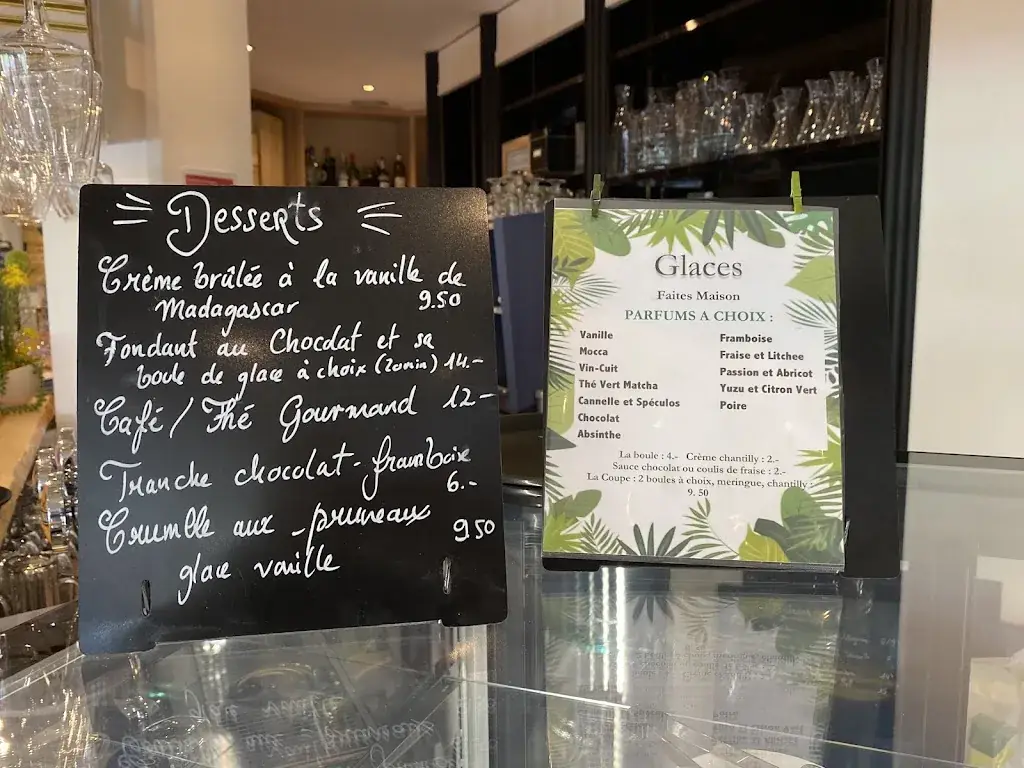 Desserts
Crème brûlée à la vanille de
Madagascar 9.50
Fondant au Chocolat et sa
boule de glace à choix (20min) 14.-
Café / Thé Gourmand 12-
Tranche chocolat-framboise
6.-
Crumble aux pruneaux 950
glace vanille
Glaces
Faites Maison
PARFUMS A CHOIX :
Vanille
Mocca
Vin-Cuit
Thé Vert Matcha
Cannelle et Spéculos
Chocolat
Absinthe
Framboise
Fraise et Litchee
Passion et Abricot
Yuzu et Citron Vert
Poire
La boule : 4.- Crème chantilly : 2.-
Sauce chocolat ou coulis de fraise : 2.-
La Coupe : 2 boules à choix, meringue, chantilly :
9. 50